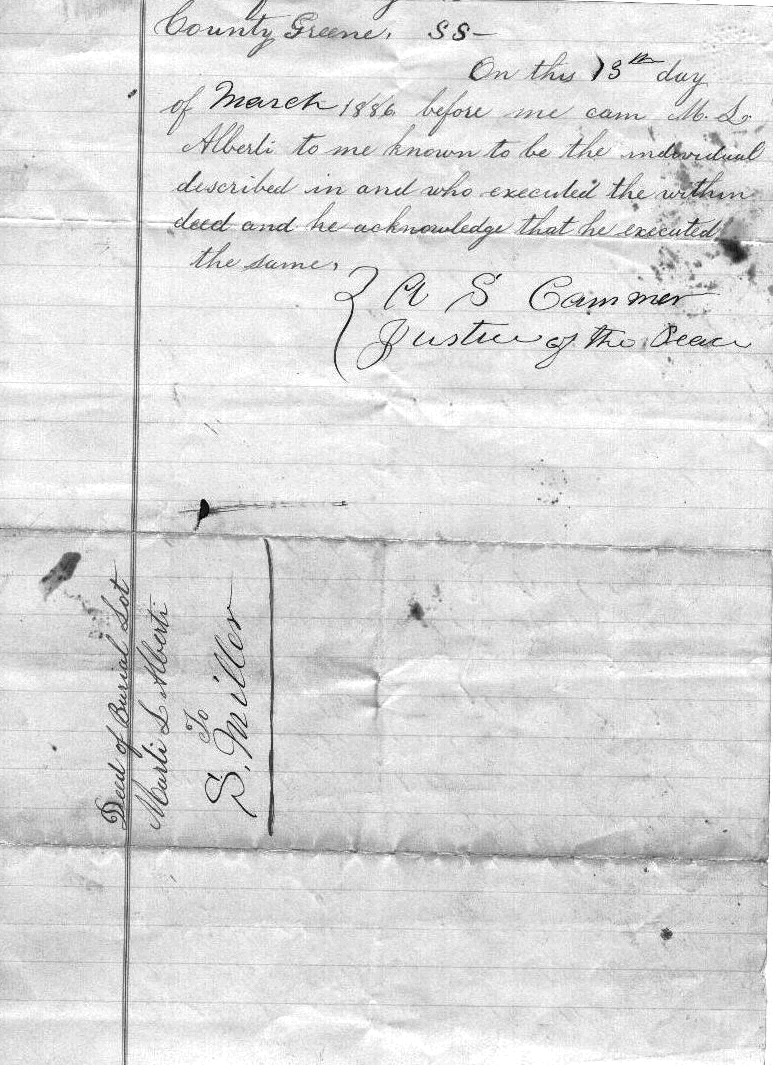 County Greene. SS-
On this 13th day
of March 1886 before me cam M. L.
Alberti to me known to be the individual
described in and who executed the within
deed and he acknowledge that he executed
the same,
A S Cammer
Justice of the Peace
Deed of Burial Lot
Marti L Alberti
To
S. Miller